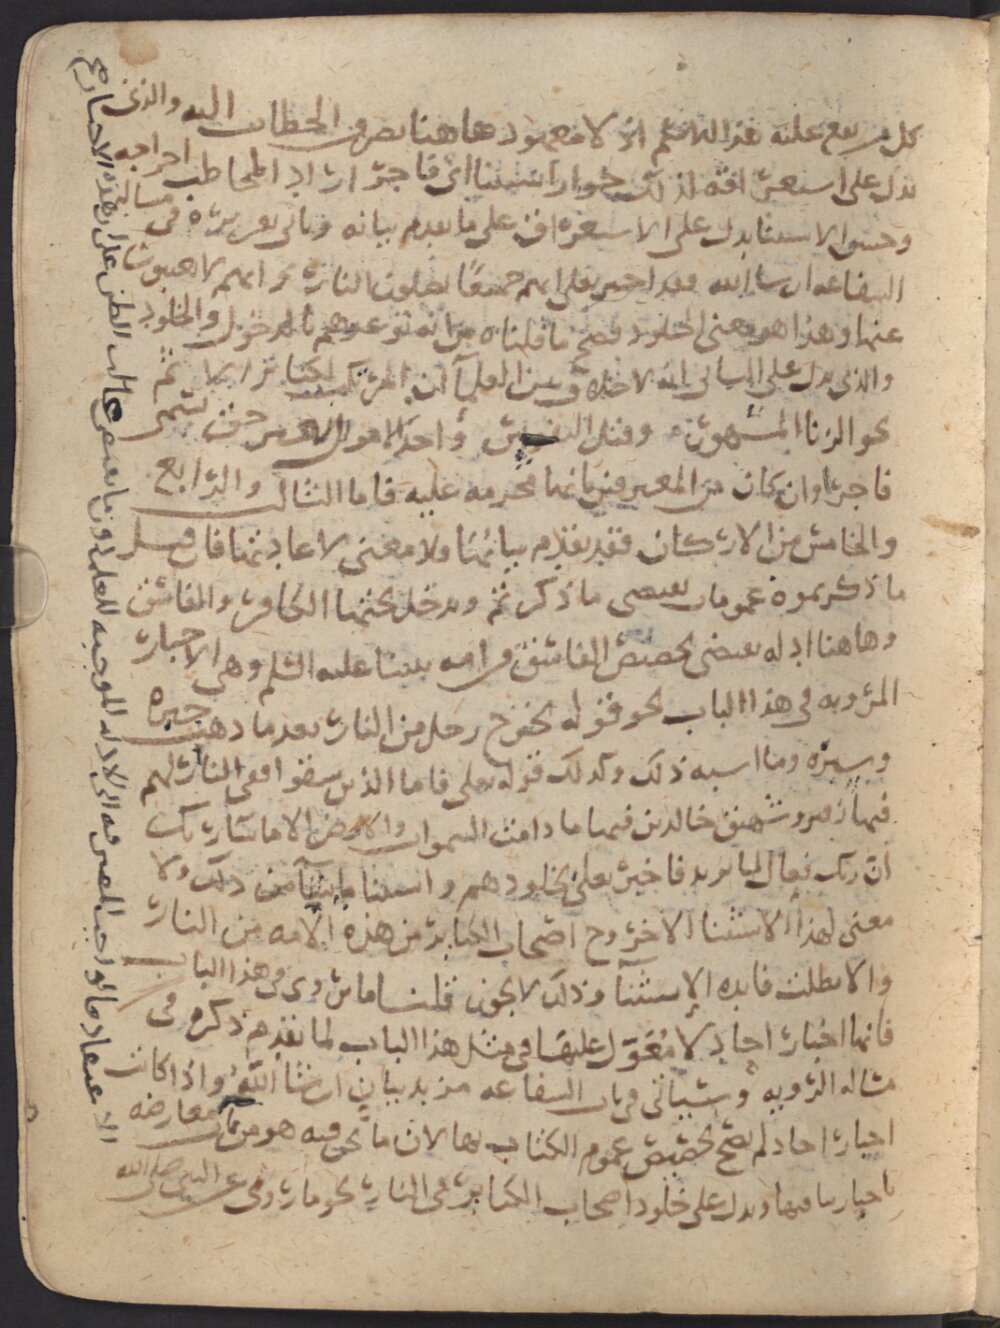 كل من يقع عليه هذا الاسم اذ لا معهود هاهنا يصرف الخطاب اليه والذي
يدل على استغراقه لذلك جواز استثنا اي فاجر اراد المخاطب اخراجه
وحسن الاستثنا يدل على الاستغراق على ما تقدم بيانه وياتي تقريره في مسالة
الشفاعه ان شا الله وقد اخبر تعلى انهم جميعا يصلون النار ثم انهم لا يغيبون
عنها وهذا هو معنى الخلود فصح ما قلناه من انه توعدهم بالدخول والخلود
والذي يدل على الثاني انه لا خلاف بين العلمآ ان المرتكب لكبائر الاثم
نحو الزنا المشهور وقتل النفوس واخذ الاموال بغير حق يسمى
فاجرا وان كان من المعترفين بانها محرمه عليه فاما الثالث والرابع
والخامس من الاركان فقد تقدم بيانها ولا معنى لاعادتها فان قيل
ما ذكرتموه عمومات تقتضي ما ذكرتم ويدخل تحتها الكافر والفاسق
وهاهنا ادله تقتضي تخصيص الفاسق من امه نبينا عليه السلم وهي الاخبار
المرويه في هذا الباب نحو قوله يخرج رجل من النار بعد ما ذهب حبره
وسبره وما اشبه ذلك وكذلك قوله تعلى فاما الذين شقوا ففي النار لهم
فيها زفير وشهيق خالدين فيها ما دامت السموات والارض الا ما شا ربك
ان ربك فعال لما يريد فاخبر تعلى بخلودهم واستثنا ما شآ من ذلك ولا
معنى لهذا الاستثنا الا خروج اصحاب الكبائر من هذه الامه من النار
والا بطلت فايده الاستثنآ وذلك لا يجوز قلنا ما روي في هذا الباب
فانها اخبار احاد لا معول عليها في مثل هذا الباب لما تقدم ذكره في
مساله الرويه وسياتي في باب الشفاعه مزيد بيان ان شا الله واذا كانت
اخبار احاد لم يصح تخصيص عموم الكتاب بها لان ما نحن فيه هو من معارضه
باخبار تنافيها ويدل على خلود اصحاب الكبائر في النار نحو ما روي عن النبي صلى الله